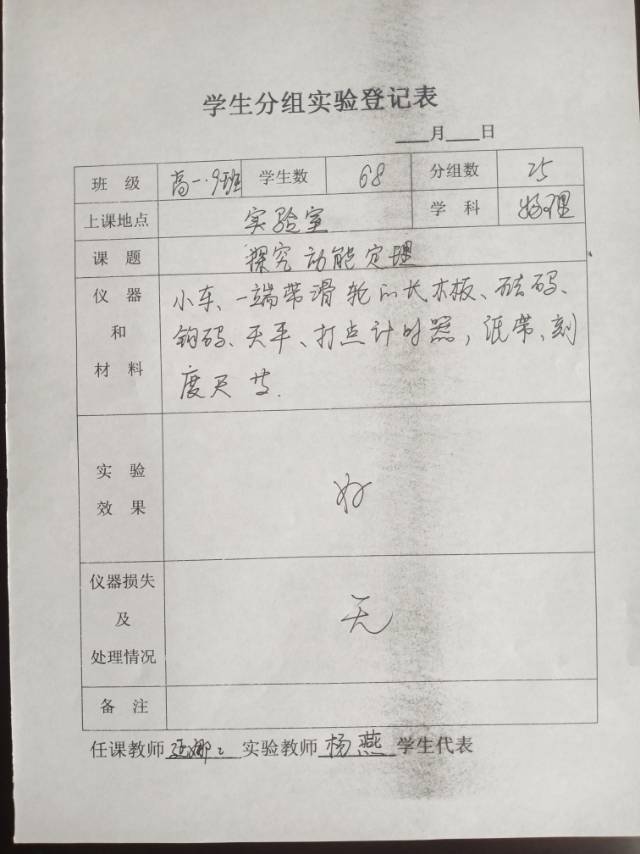 学生分组实验登记表
___月___日
班 级 高一.9班 学生数 68 分组数 25
上课地点 实验室 学 科 物理
课 题 探究动能定理
仪 器 和 材 料
小车、一端带滑轮的长木板、砝码、
钩码、天平、打点计时器,纸带、刻
度尺等.
实 验 效 果 好
仪器损失 及 处理情况 无
备 注
任课教师 实验教师 杨燕 学生代表